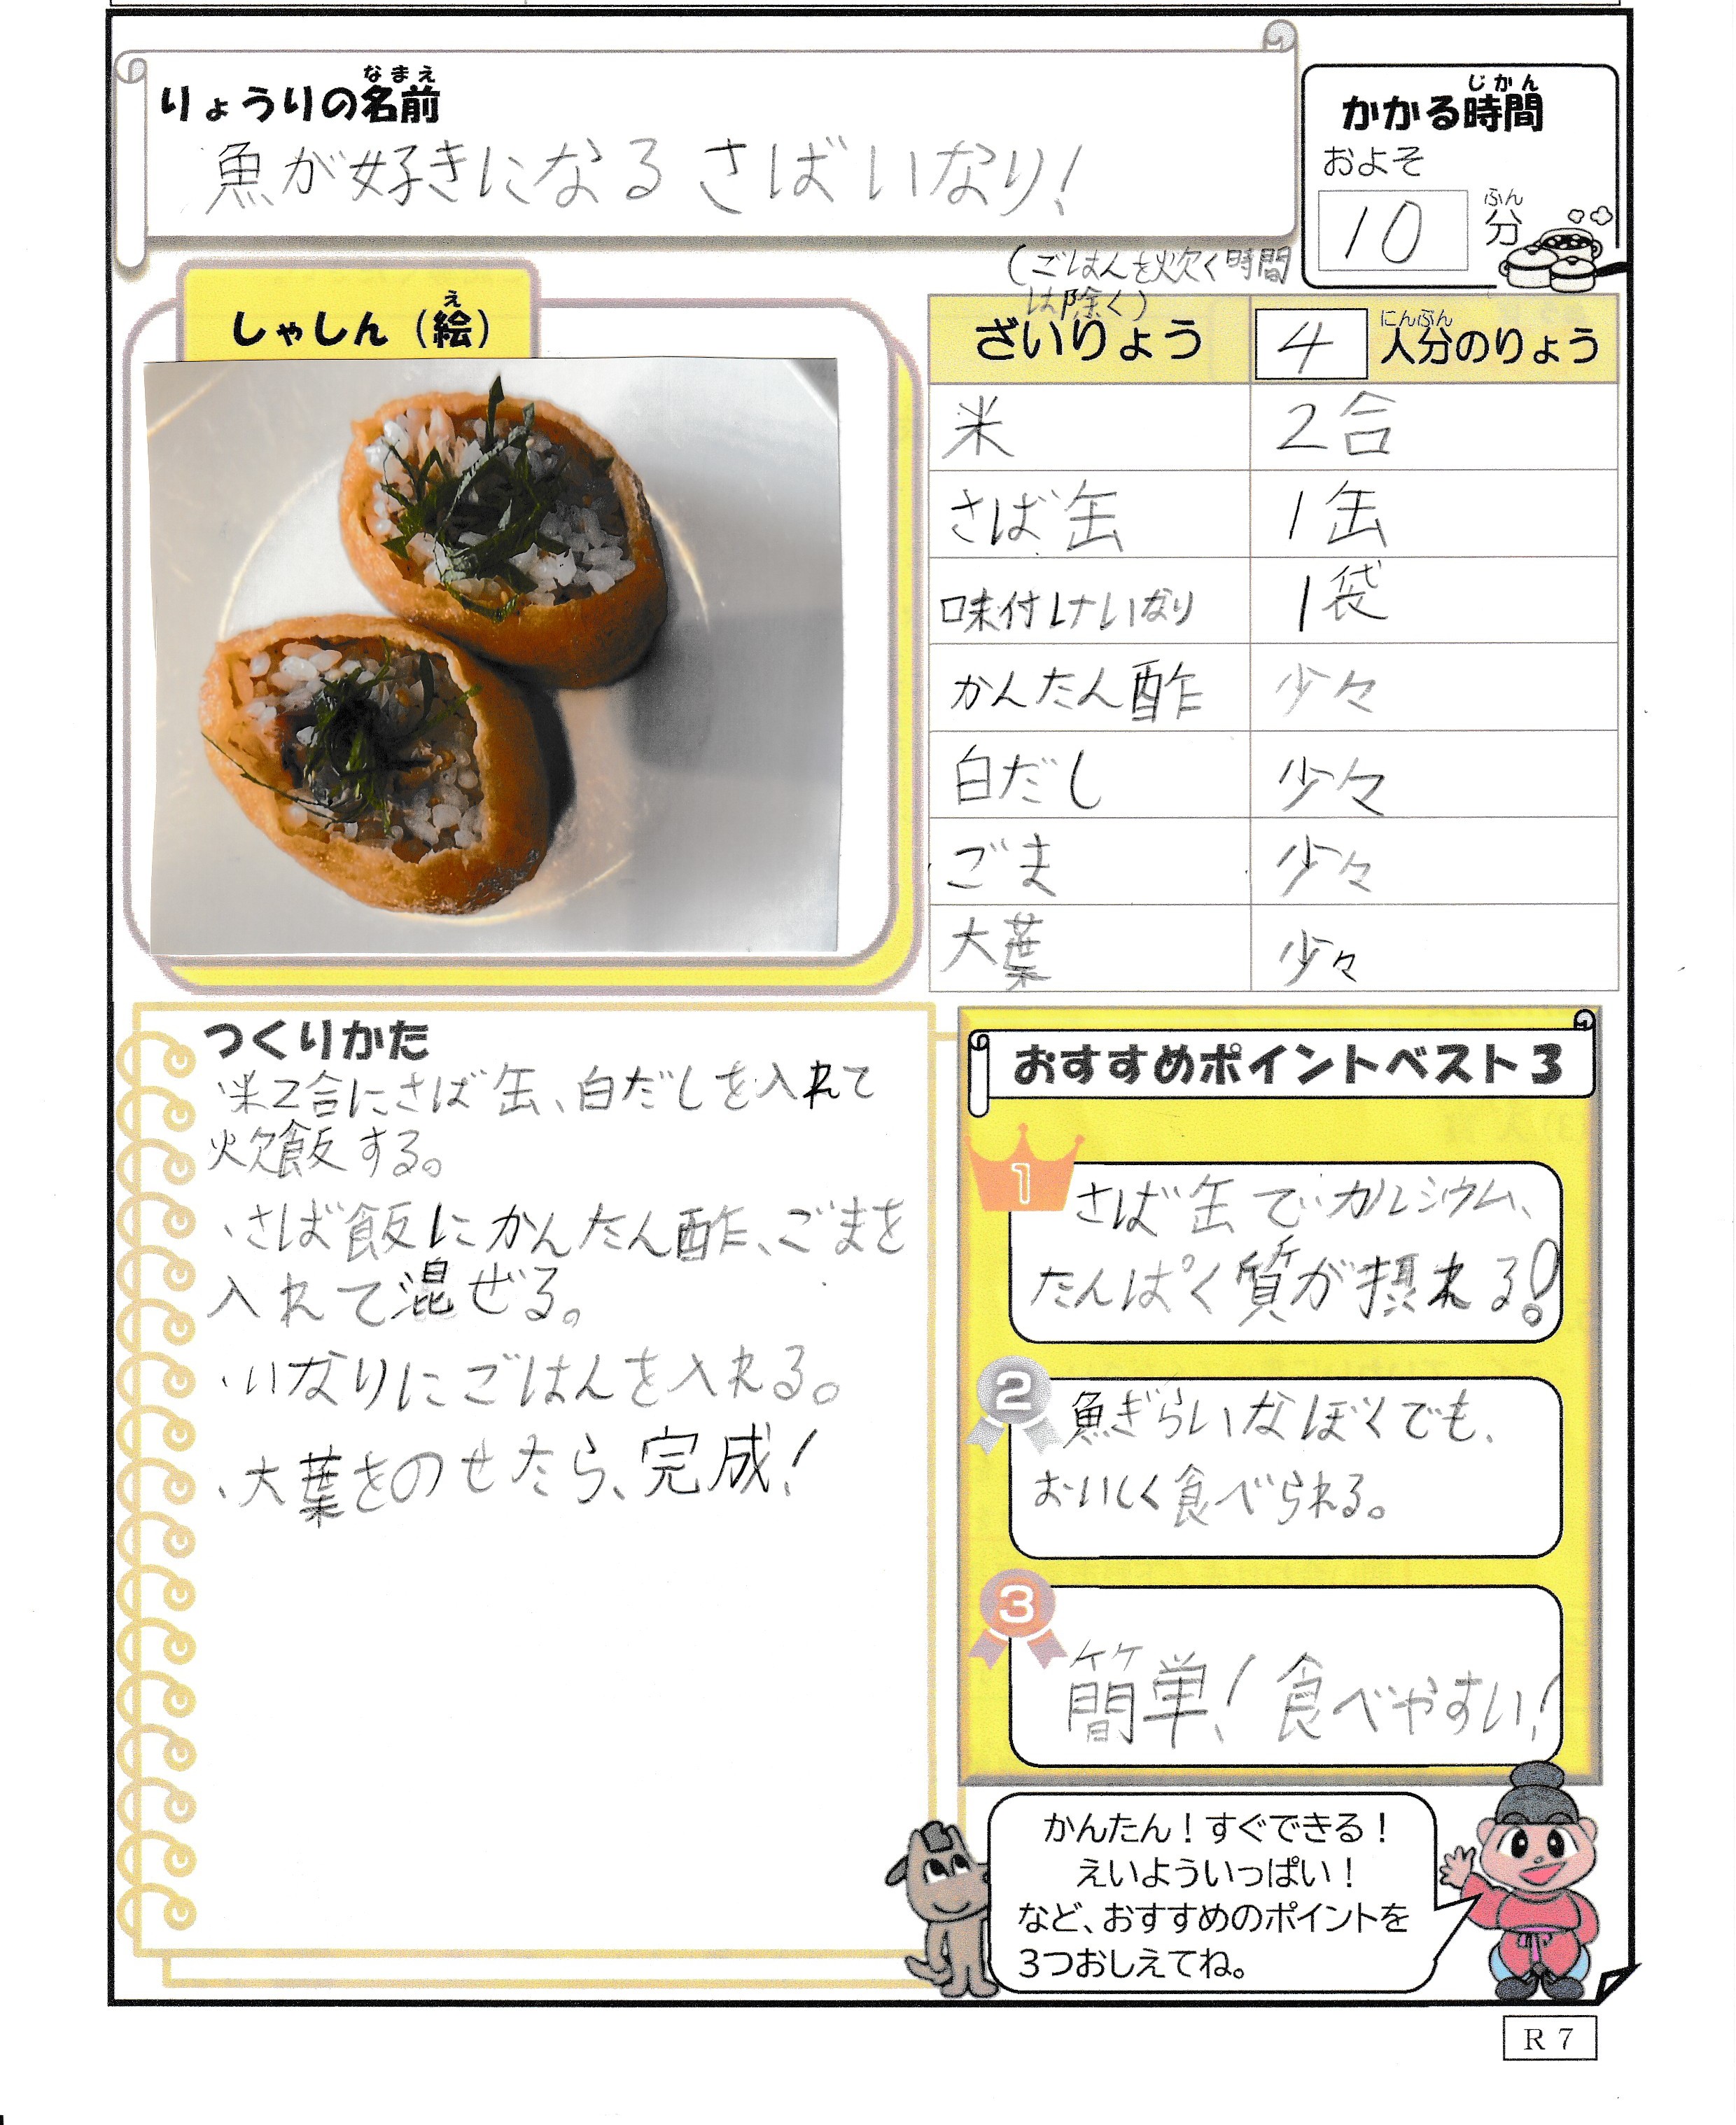 なまえ
りょうりの名前
魚が好きになるさばいなり!
じかん
かかる時間
およそ
10
ふん
分
(ごはんを炊く時間
は除く)
え
しゃしん(絵)
ざいりょう 4 人分のりょう
にんぶん
米 2合
さば缶 1缶
味付けいなり 1袋
かんたん酢 少々
白だし 少々
ごま 少々
大葉 少々
つくりかた
・米2合にさば缶、白だしを入れて
炊飯する。
・さば飯にかんたん酢、ごまを
入れて混ぜる。
・いなりにごはんを入れる。
・大葉をのせたら、完成!
おすすめポイントベスト3
1
さば缶でカルシウム、
たんぱく質が摂れる!
2
魚ぎらいなぼくでも、
おいしく食べられる。
3
簡単!食べやすい!
かんたん!すぐできる!
えいよういっぱい!
など、おすすめのポイントを
3つおしえてね。
R7